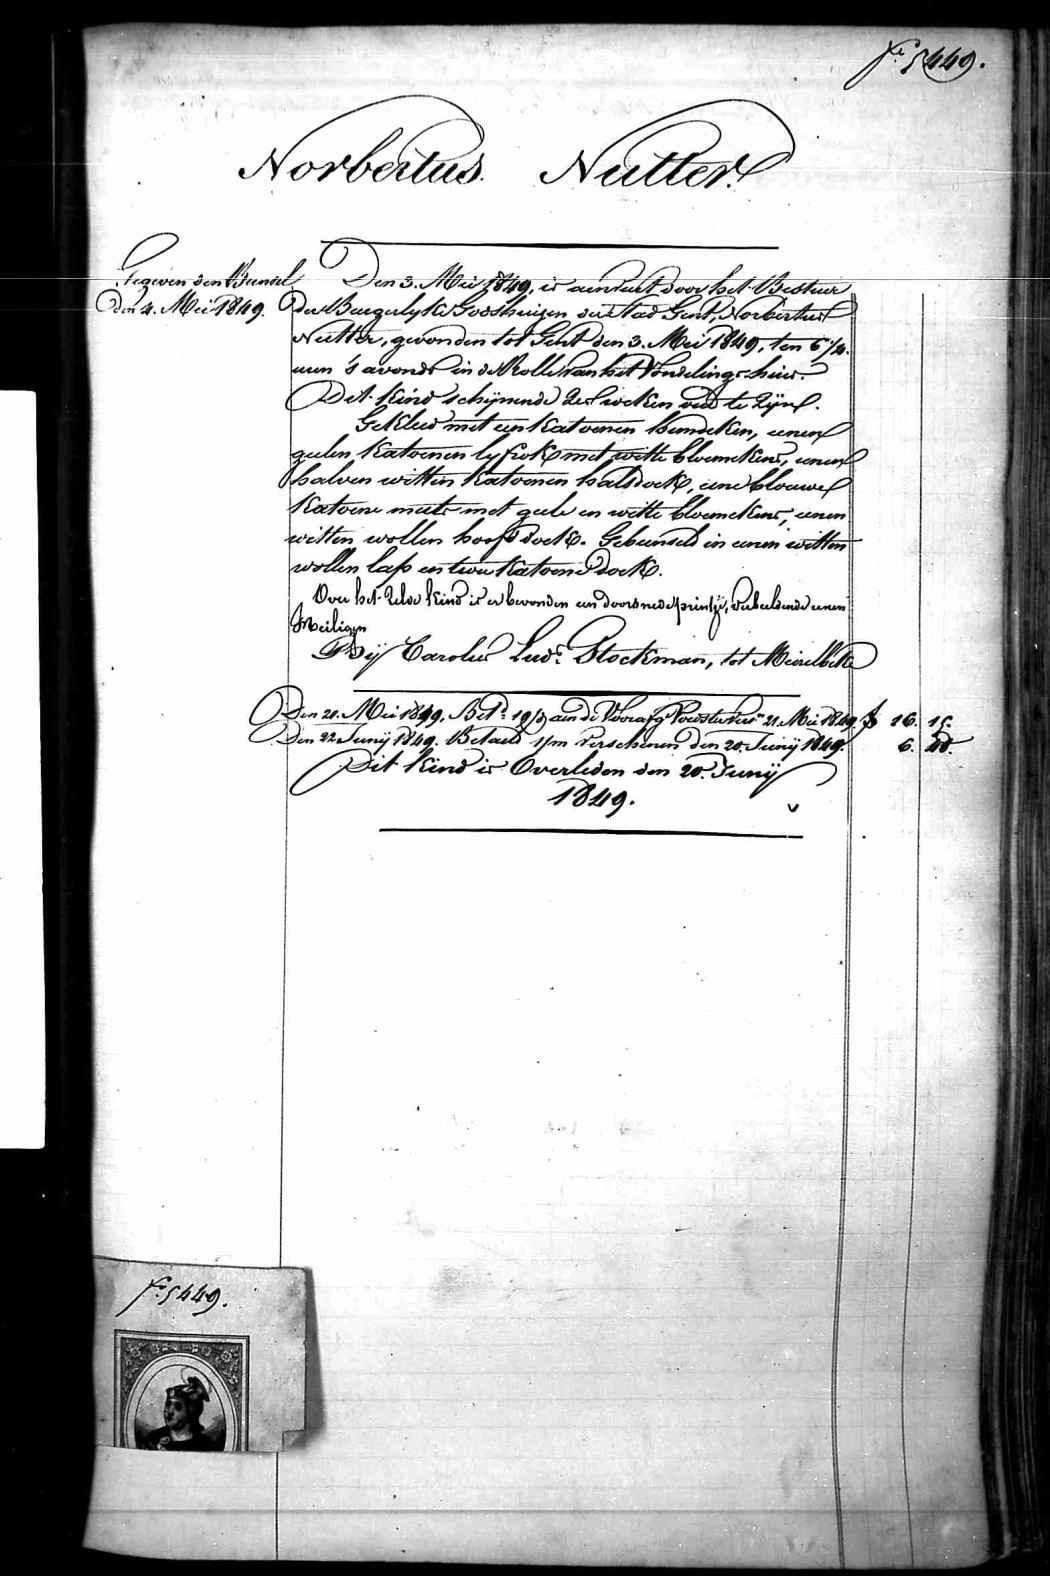 fo 5449.
Norbertus Nutter.
Gegeven den Bundel
den 4. Mei 1849.
Den 3. Mei 1849, is aenveert door het Bestuur
der Burgerlyke Godshuizen der Stad Gent, Norbertus
Nutter, gevonden tot Gent den 3. Mei 1849, ten 6 1/2
uren 's avonds in de Rolle van het Vondelingshuis.
Dit kind schijnende zes weken oud te zijn.
Gekleed met een katoenen hemdeken, eenen
geelen katoenen lyfrok met witte bloemekens, eenen
halven witten katoenen halsdoek, eene blouwe
katoene muts met geele en witte bloemekens, eenen
witten wollen hoofddoek. Gebunseld in eenen witten
wollen lap en twee katoene doek.
Over het zelve kind is er bevonden een doorsnede printje, verbeeldende eenen
Heiligen
Bij Carolus Luds. Stockman, tot Meirelbeke
Den 21. Mei 1849, Betd. 19/3 aen de Voorafg Voedsters 21. Mei 1849 16. 15.
Den 22 Junij 1849. Betaeld 1/m verschenen den 20. Junij 1849. 6. 40.
Dit kind is Overleden den 20. Junij
1849.
fo 5449.